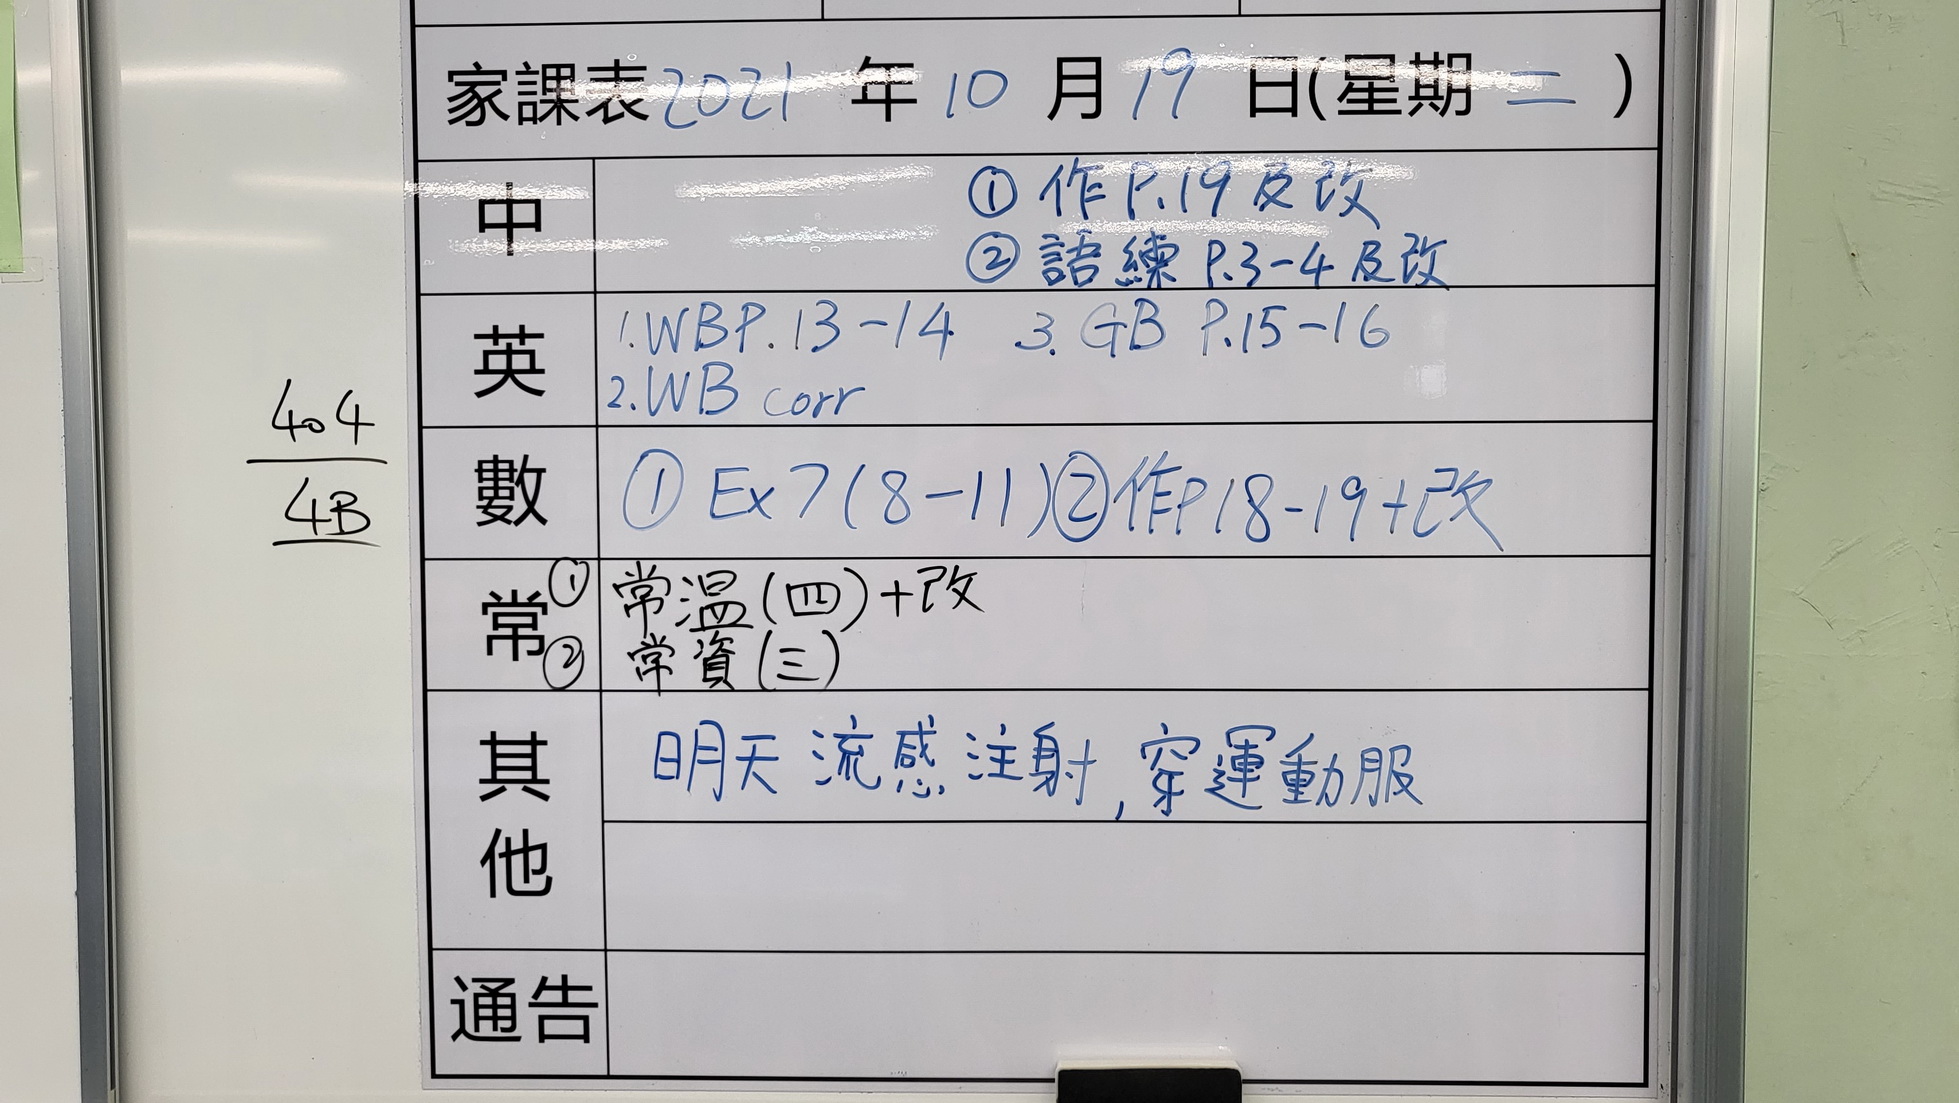 家課表 2021 年 10 月 19 日(星期 二 )
中
① 作 P.19 及改
② 語練 P.3-4 及改
英
1.WBP.13-14 3. GB P.15-16
2.WB corr
404
4B
數
① Ex 7 (8-11) ② 作P18-19+改
常
① 常温(四)+改
② 常資(三)
其他
明天流感注射,穿運動服
通告